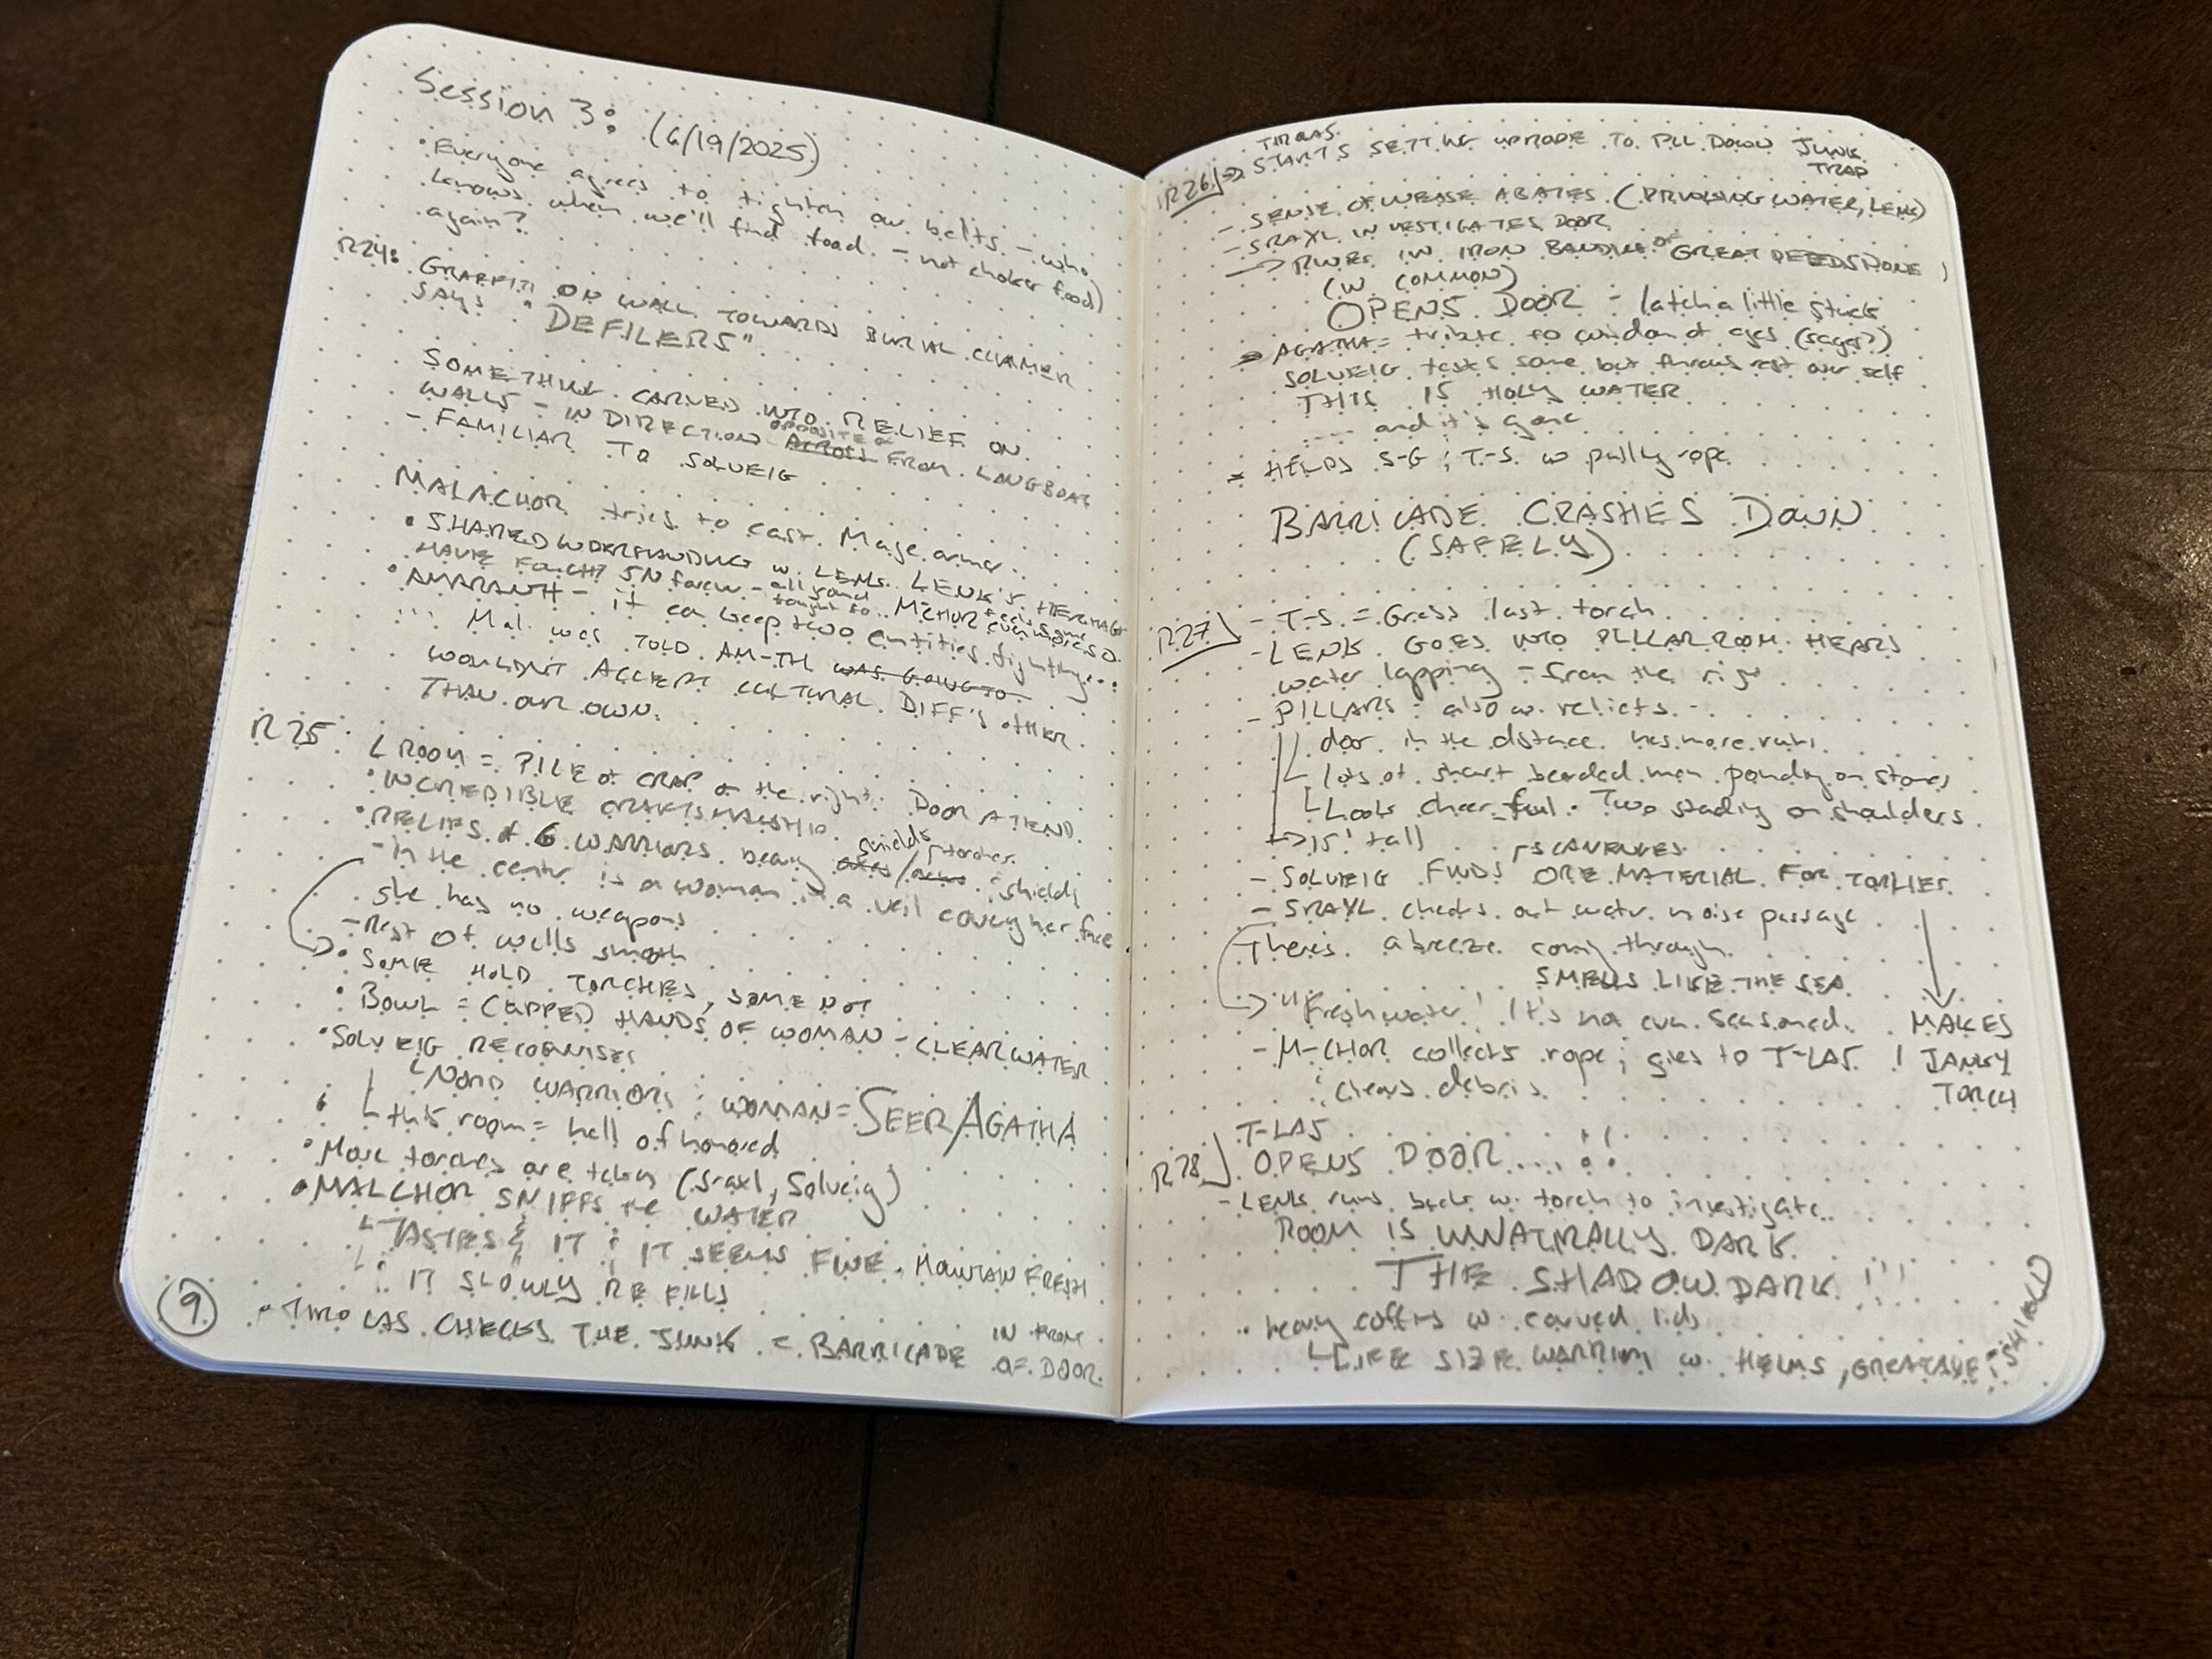 Session 3: (6/19/2025)
• Everyone agrees to tighten our belts. - who
knows when we'll find food. - not choker food)
again?
R24: GRAFFITI ON WALL TOWARDS BURIAL CHAMER
SAYS "DEFILERS"
SOMETHING CARVED INTO RELIEF ON
WALLS - IN DIRECTION OPPOSITE FROM LONGBOAT
- FAMILIAR TO SOLVEIG
MALACHOR tries to cast. Mage armor.
• SHARED w. LENK. LENK'S HERITAGE
HAVE
• AMARANTH - it can keep two entities fighting...
... Mal. was TOLD AM-TH was GOING TO
WOULDN'T ACCEPT CULTURAL DIFF'S OTHER
THAN OUR OWN.
R25: ROOM = PILE of CRAP on the right. DOOR AT END.
• INCREDIBLE CRAFTSMANSHIP.
shields, torches
• RELIEFS of 6 WARRIORS bearing axes / ; shields
- In the center is a woman in a veil covering her face
she has no weapons
- Rest of walls smooth
• SOME HOLD TORCHES, SOME NOT
• BOWL = CUPPED HANDS OF WOMAN - CLEAR WATER
• SOLVEIG RECOGNISES
NORD WARRIORS ; WOMAN = SEER AGATHA
this room = hall of honored
• More torches are taken (Sraxl, Solveig)
• MALCHOR SNIFFS the WATER
TASTES IT ; IT SEEMS FINE. MOUNTAIN FRESH
IT SLOWLY REFILLS
• THROLAS CHECKS THE JUNK = BARRICADE IN FRONT
OF DOOR.
9
R26 STARTS SETTING UP ROPE TO PLL DOWN JUNK
TRAP
- SENSE OF UNEASE ABATES. (DRINKING WATER, LENK)
- SRAXL INVESTIGATES DOOR
→ RUNES IN IRON BANDING OF GREAT DEEDS DONE
(IN COMMON)
OPENS DOOR - latch a little stuck
AGATHA = tribute to wisdom of ages (sages?)
SOLVEIG tastes some but throws rest over self
THIS IS HOLY WATER
.... and it's gone
HELPS S-G ; T-S. w pully rope
BARRICADE CRASHES DOWN
(SAFELY)
R27 - T-S. = Grabs last torch
- LENK GOES INTO PILLAR ROOM. HEARS
water lapping - from the right
- PILLARS : also w. reliefs. -
door in the distance has more runes.
lots of short bearded men pounding on stones
Looks cheerful. Two standing on shoulders.
→ 15' tall
SCAVENGES
- SOLVEIG FINDS MORE MATERIAL FOR TORCHES.
- SRAXL checks out water noise passage
There's a breeze coming through.
SMELLS LIKE THE SEA
→ "Freshwater! It's not even seasoned.
- M-CHOR collects rope; gives to T-LAS.
; clears debris.
MAKES
JANKY
TORCH
T-LAS
R28 OPENS DOOR....!!
- LENK runs back w. torch to investigate.
ROOM IS UNNATRALLY DARK.
THE SHADOWDARK !!!
• heavy coffins w. carved lids
LIFE SIZE WARRIORS w. HELMS, GREATAXE ; SHIELD